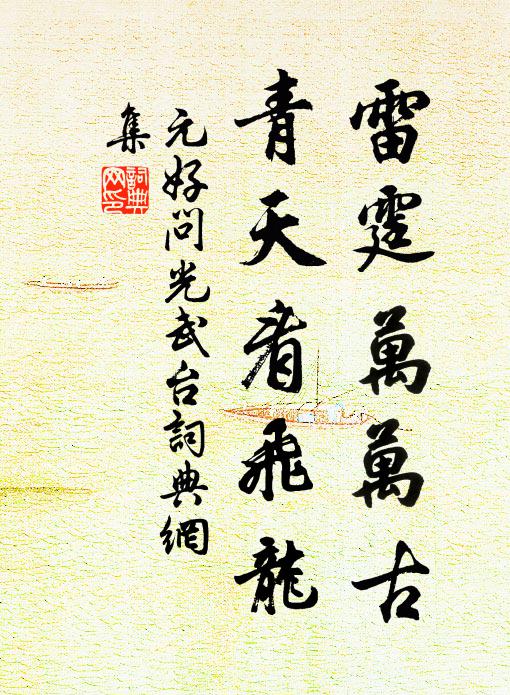 雷霆萬萬古
青天看飛龍
元好問光武台詞典網
集
詞典
网印